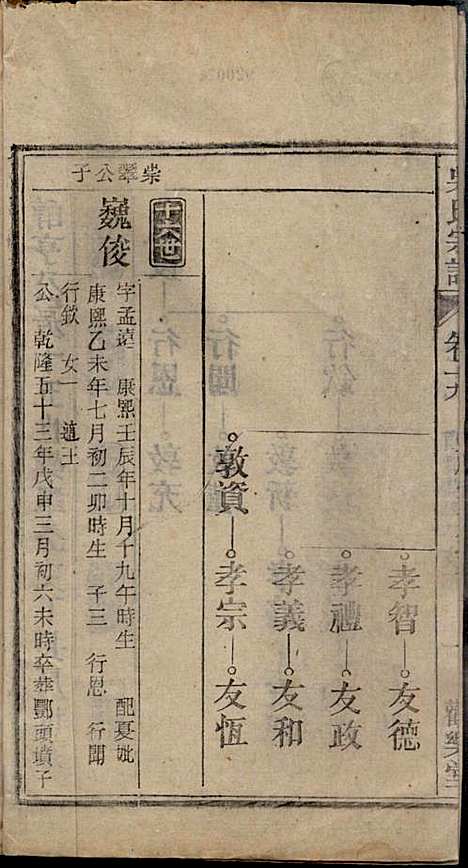 吳氏宗譜
卷十九
孝智 友德
孝禮 友政
孝義 友和
敦資 孝宗 友恆
十六世
崇翠公子
巍俊
字孟遠 康熙壬辰年十月十九午時生 配夏妣
康熙乙未年七月初二卯時生 子三 行恩 行聞
行欽 女一 適王
公 乾隆五十三年戊申三月初六未時卒葬鄷頭墳子